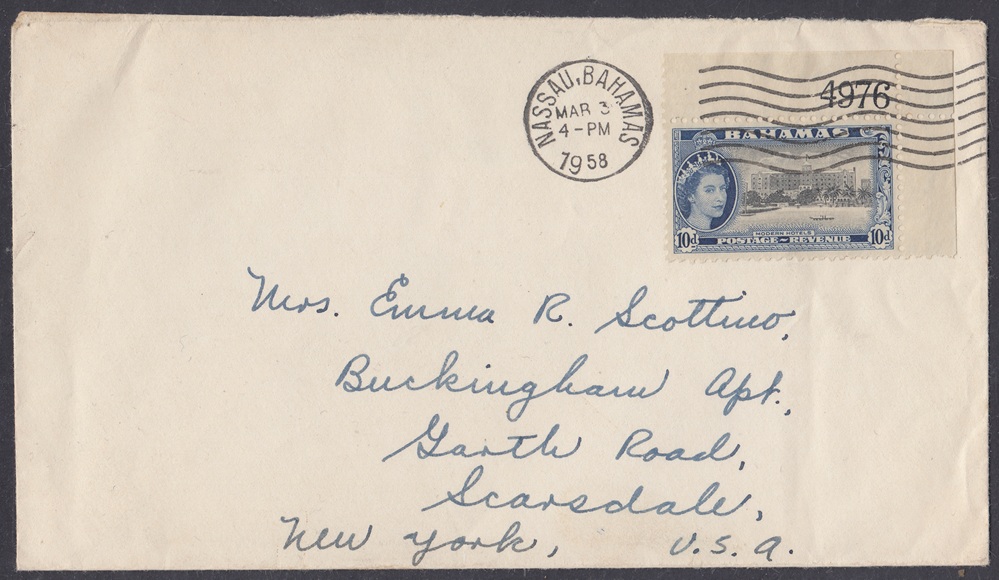 NASSAU, BAHAMAS
MAR 3
4-PM
1958
4976
BAHAMAS
MODERN HOTELS
10d POSTAGE~REVENUE 10d
Mrs. Emma R. Scottino,
Buckingham Apt.,
Garth Road,
Scarsdale,
New York, U.S.A.